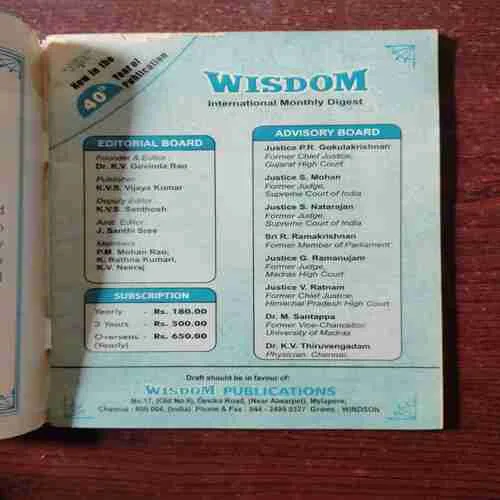 Now in the
40th Year of
Publication
WISDOM
International Monthly Digest
EDITORIAL BOARD
Founder & Editor :
Dr. K.V. Govinda Rao
Publisher
K.V.S. Vijaya Kumar
Deputy Editor
K.V.S. Santhosh
Asst. Editor
J. Santhi Sree
Members
P.M. Mohan Rao,
K. Rathna Kumari,
K.V. Neeraj
SUBSCRIPTION
Yearly - Rs. 180.00
3 Years - Rs. 500.00
Overseas - Rs. 650.00
(Yearly)
ADVISORY BOARD
Justice P.R. Gokulakrishnan
Former Chief Justice,
Gujarat High Court
Justice S. Mohan
Former Judge,
Supreme Court of India
Justice S. Natarajan
Former Judge,
Supreme Court of India
Sri R. Ramakrishnan
Former Member of Parliament
Justice G. Ramanujam
Former Judge,
Madras High Court
Justice V. Ratnam
Former Chief Justice,
Himachal Pradesh High Court
Dr. M. Santappa
Former Vice-Chancellor,
University of Madras
Dr. K.V. Thiruvengadam
Physician, Chennai.
Draft should be in favour of:
WISDOM PUBLICATIONS
No.17, (Old No.9), Road, (Near Alwarpet), Mylapore,
Chennai - 600 004. (India) Phone & Fax : 044 - 2499 Grams : WINDSON